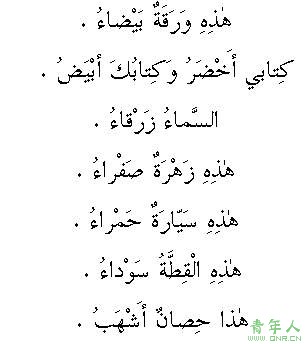 هٰذِهِ وَرَقَةٌ بَيْضاءُ .
كِتابي أَخْضَرُ وَكِتابُكَ أَبْيَضُ .
السَّماءُ زَرْقاءُ .
هٰذِهِ زَهْرَةٌ صَفْراءُ .
هٰذِهِ سَيّارَةٌ حَمْراءُ .
هٰذِهِ الْقِطَّةُ سَوْداءُ .
هٰذا حِصانٌ أَشْهَبُ .
青年人
www.QNR.cn